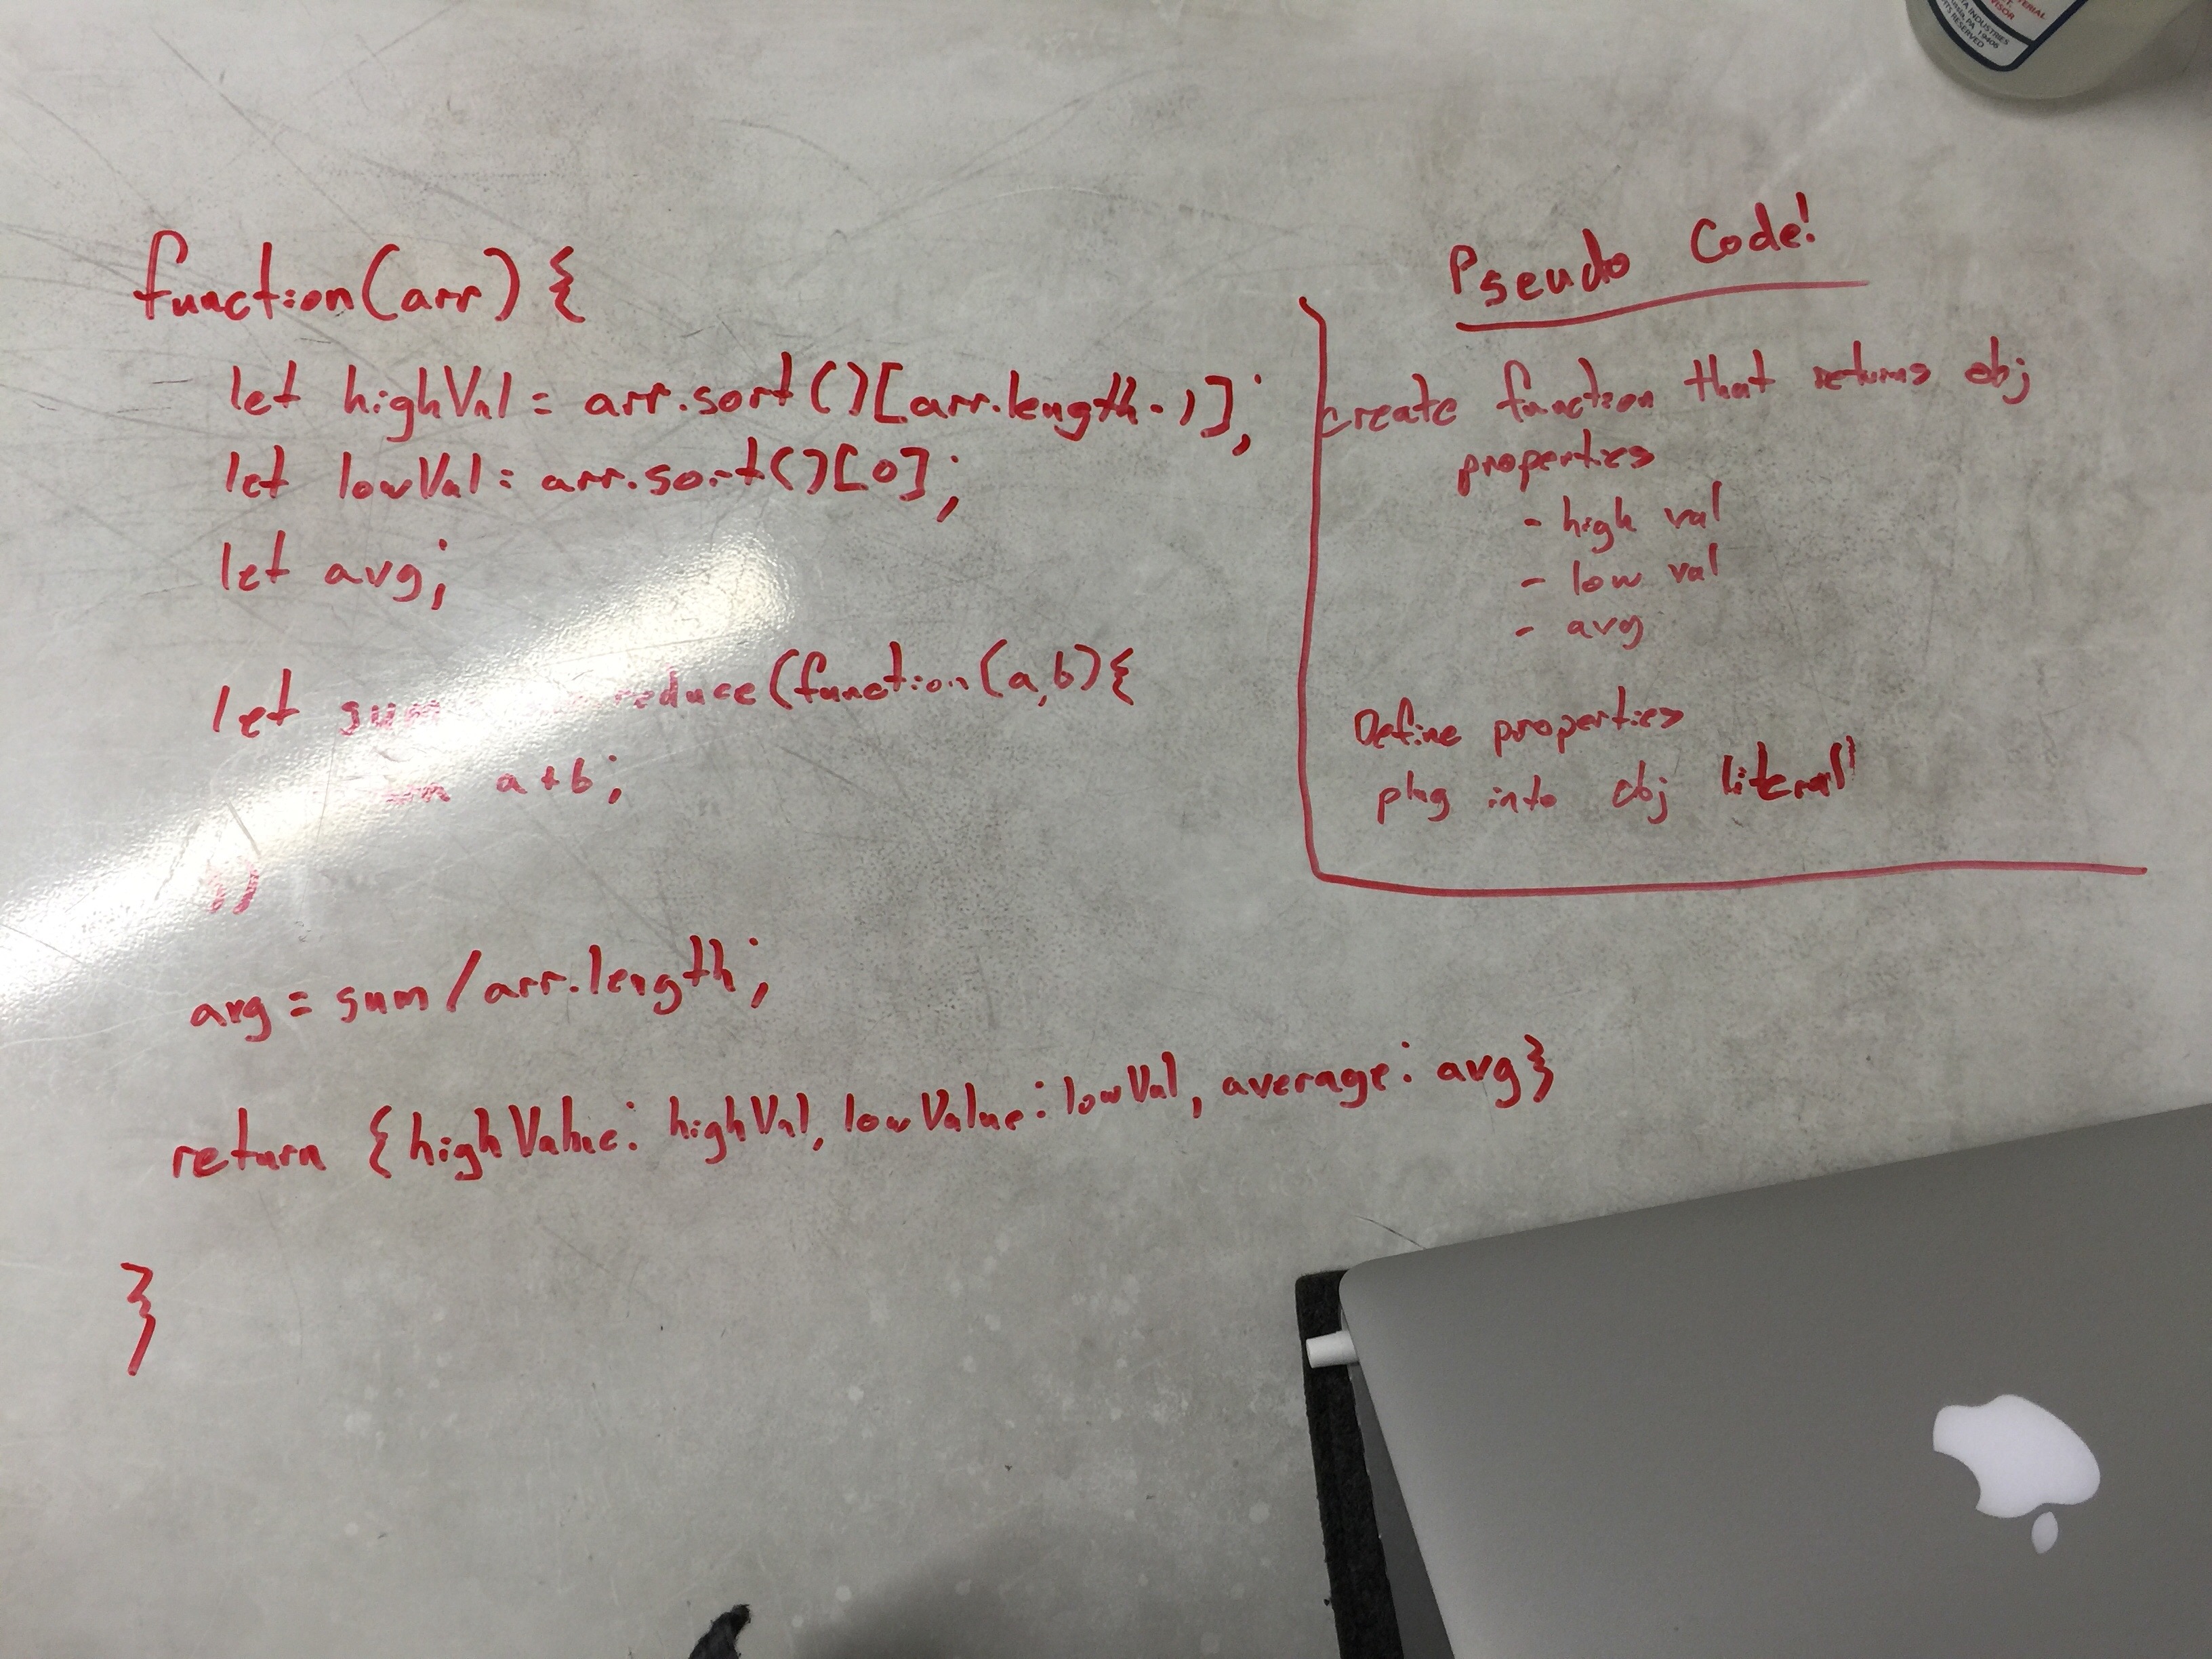 function(arr) {
let highVal = arr.sort()[arr.length-1];
let lowVal = arr.sort()[0];
let avg;
let sum reduce(function(a,b){
a+b;
})
avg = sum/arr.length;
return {highValue: highVal, lowValue: lowVal, average: avg}
}
Pseudo Code!
create function that returns obj
properties
- high val
- low val
- avg
Define properties
plug into obj literal
INDUSTRIES
PA 19406
RESERVED